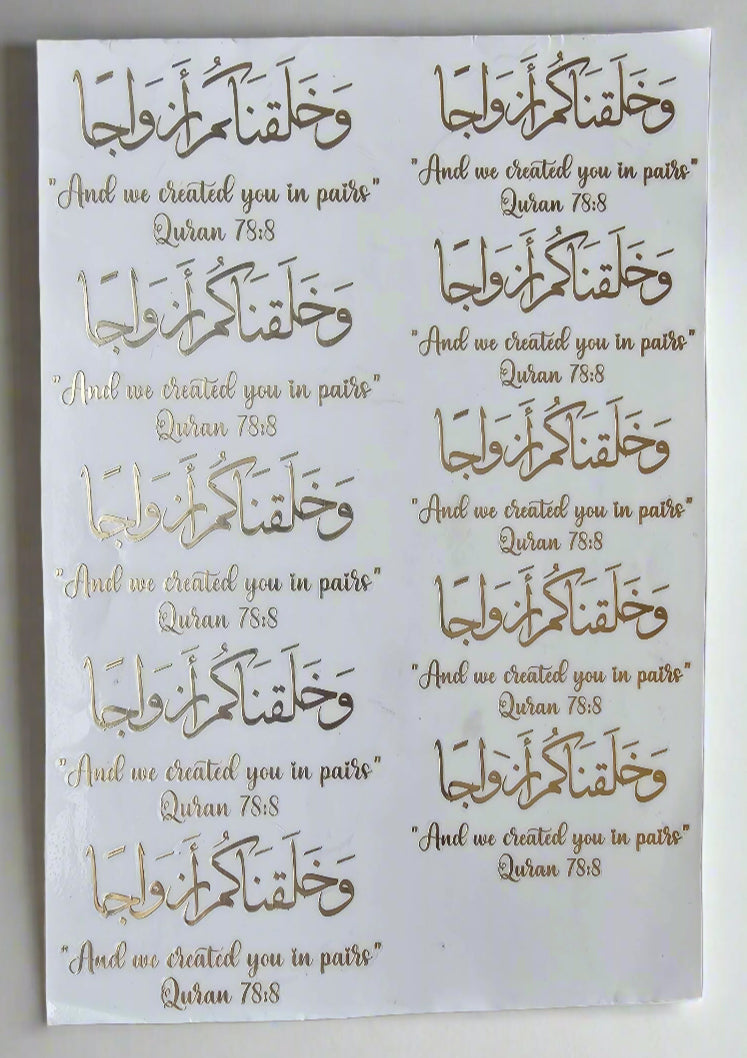 وَخَلَقنَاكُم أَزوَاجًا
"And we created you in pairs"
Quran 78:8
وَخَلَقنَاكُم أَزوَاجًا
"And we created you in pairs"
Quran 78:8
وَخَلَقنَاكُم أَزوَاجًا
"And we created you in pairs"
Quran 78:8
وَخَلَقنَاكُم أَزوَاجًا
"And we created you in pairs"
Quran 78:8
وَخَلَقنَاكُم أَزوَاجًا
"And we created you in pairs"
Quran 78:8
وَخَلَقنَاكُم أَزوَاجًا
"And we created you in pairs"
Quran 78:8
وَخَلَقنَاكُم أَزوَاجًا
"And we created you in pairs"
Quran 78:8
وَخَلَقنَاكُم أَزوَاجًا
"And we created you in pairs"
Quran 78:8
وَخَلَقنَاكُم أَزوَاجًا
"And we created you in pairs"
Quran 78:8
وَخَلَقنَاكُم أَزوَاجًا
"And we created you in pairs"
Quran 78:8